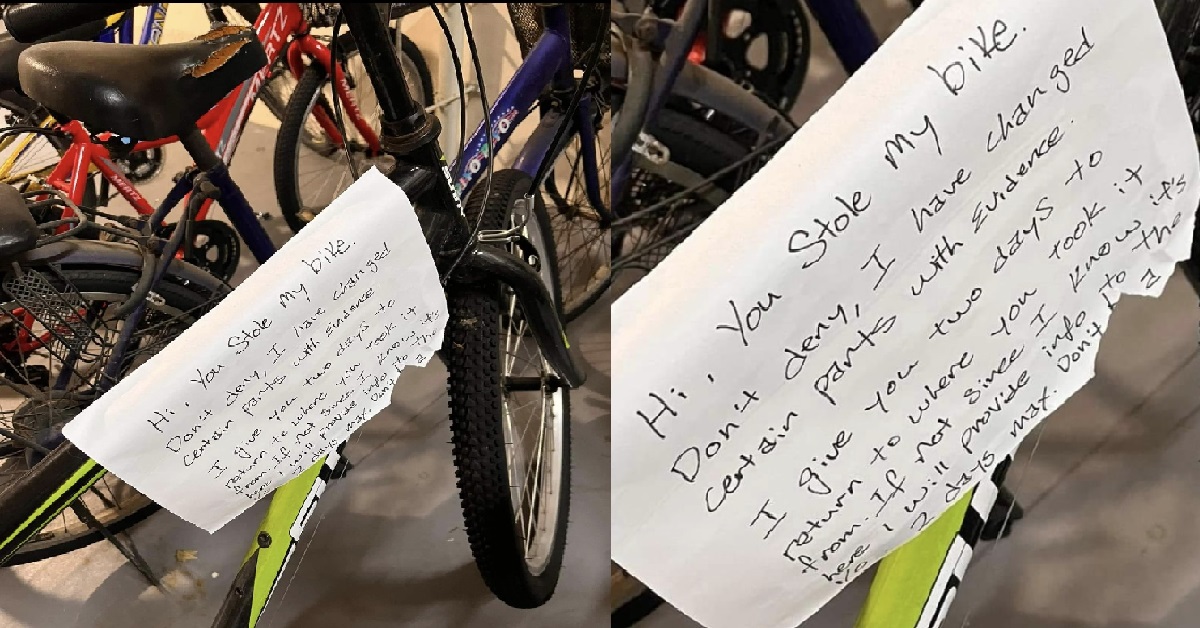 MERTZ
Hi, You Stole My bike.
Don't deny, I have changed
certain parts with evidence
I give you two days to
return to where you took it
from. If not since I know it's
here I will provide info to the
2 days max. Don't
Hi, You Stole My bike.
Don't deny, I have changed
certain parts with Evidence.
I give you two days to
return to where you took it
from. If not since I know it's
here I will provide info to the
2 days max. Don't